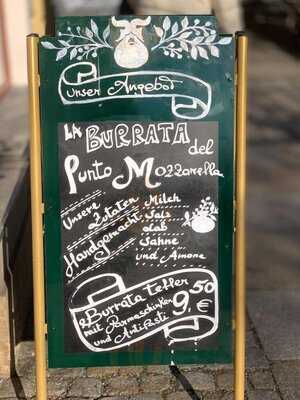 unser Angebot
LA BURRATA del
Punto Mozzarella
Unsere Zutaten Milch
Salz
Lab
Handgemacht Sahne
und Amore
Burrata Teller
mit Parmaschinken
und Antipasti
9,50 €